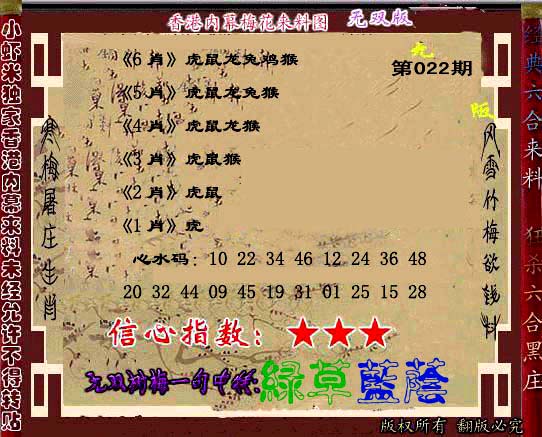 香港内幕梅花来料图 无双版
《6 肖》虎鼠龙兔鸡猴
第022期
《5 肖》虎鼠龙兔猴
《4 肖》虎鼠龙猴
《3 肖》虎鼠猴
《2 肖》虎鼠
《1 肖》虎
心水码：10 22 34 46 12 24 36 48
20 32 44 09 45 19 31 01 25 15 28
信心指数：★★★
无双浏梅一句中特:綠草藍蔭
版权所有 翻版必究
小虾米独家香港内幕来料未经允许不得转贴
寒梅屠庄生肖
版
风雪竹梅欲钱料
经典六合来料
狂杀六合黑庄